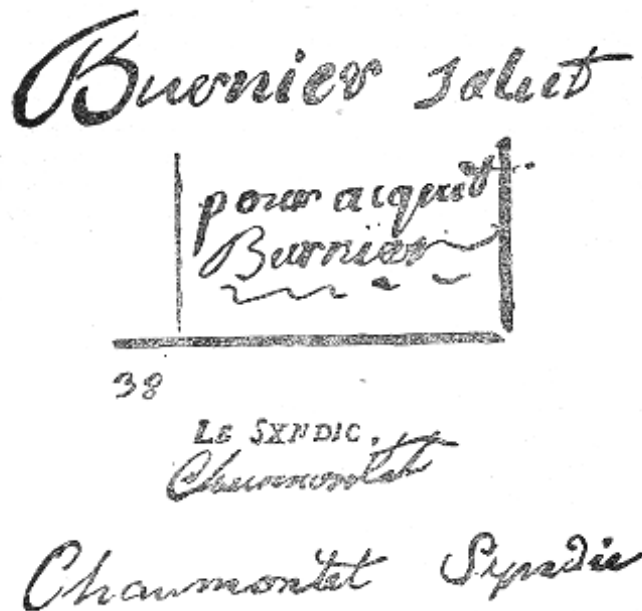 Burnier salut
pour acquit
Burnier
38
LE SYNDIC.
Chaumontet
Chaumontet Syndic